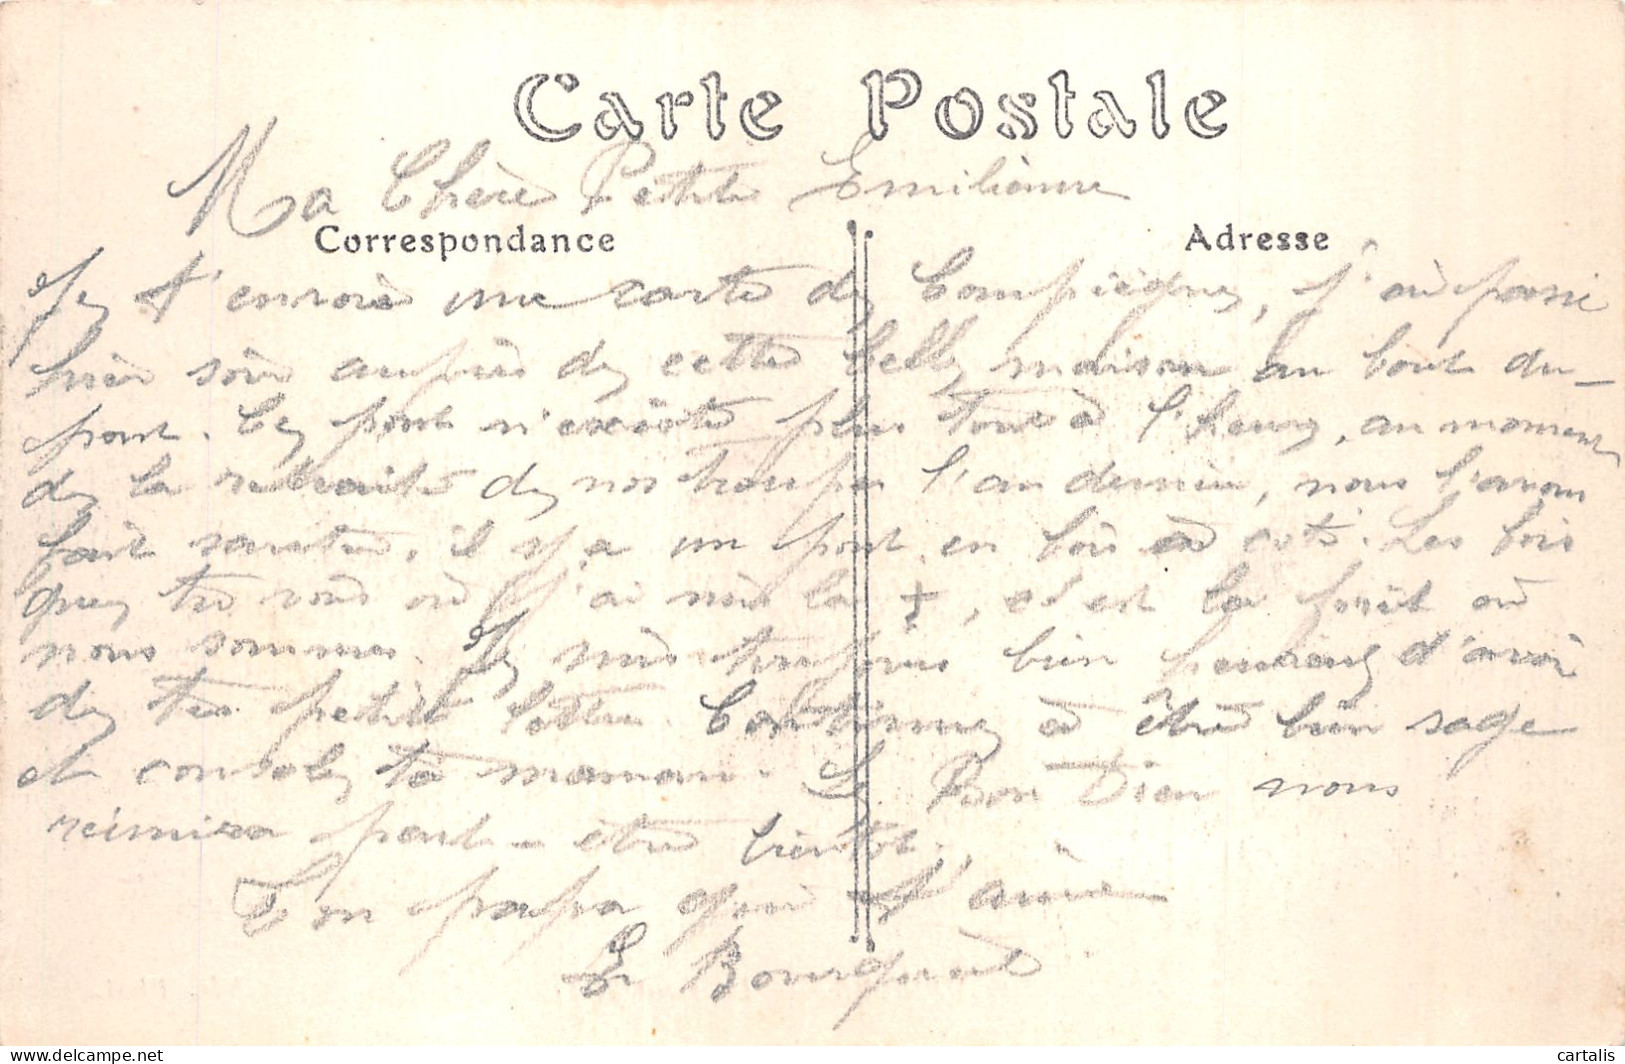 Carte Postale
Ma Chère Petite Emilienne
Correspondance
Adresse
Je t'envoie une carte de Compiègne, j'ai passé
hier soir auprès de cette belle maison au bout du
pont. Ce pont n'existe plus tout à l'heure, au moment
de la retraite de nos troupes l'an dernier, nous l'avons
fait sauter, il y a un pont en bois à coté. Les bois
que tu vois où j'ai mis la +, c'est la forêt où
nous sommes. Je suis toujours bien heureux d'avoir
de tes petites lettres. Continue à être bien sage
et console ta maman. Le Bon Dieu nous
réunira peut-être bientôt.
Ton papa qui t'aime
E Bourgeois
cartalis
delcampe.net